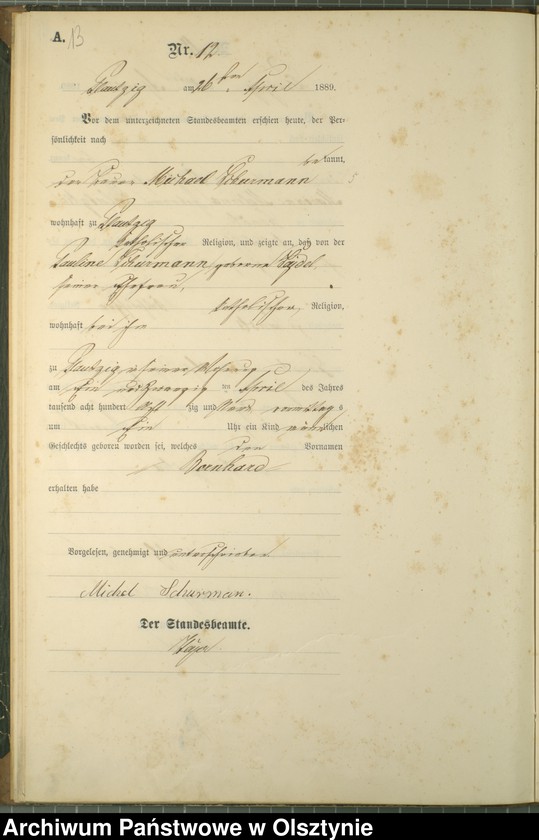 A. 13
Nr. 12.
Plautzig am 26ten April 1889.
Vor dem unterzeichneten Standesbeamten erschien heute, der Per-
sönlichkeit nach
bekannt,
Michael Schurmann
wohnhaft zu Plautzig
katholischer Religion, und zeigte an, daß von der
Pauline Schurmann geborene
seiner Ehefrau,
katholischer Religion,
wohnhaft bei ihm
zu Plautzig in seiner Wohnung
am ein und zwanzig ten April des Jahres
tausend acht hundert acht zig und neun
um ein Uhr ein Kind männlichen
Geschlechts geboren worden sei, welches den Vornamen
Bernhard
erhalten habe
Vorgelesen, genehmigt und unterschrieben
Michel Schurman.
Der Standesbeamte.
Archiwum Państwowe w Olsztynie